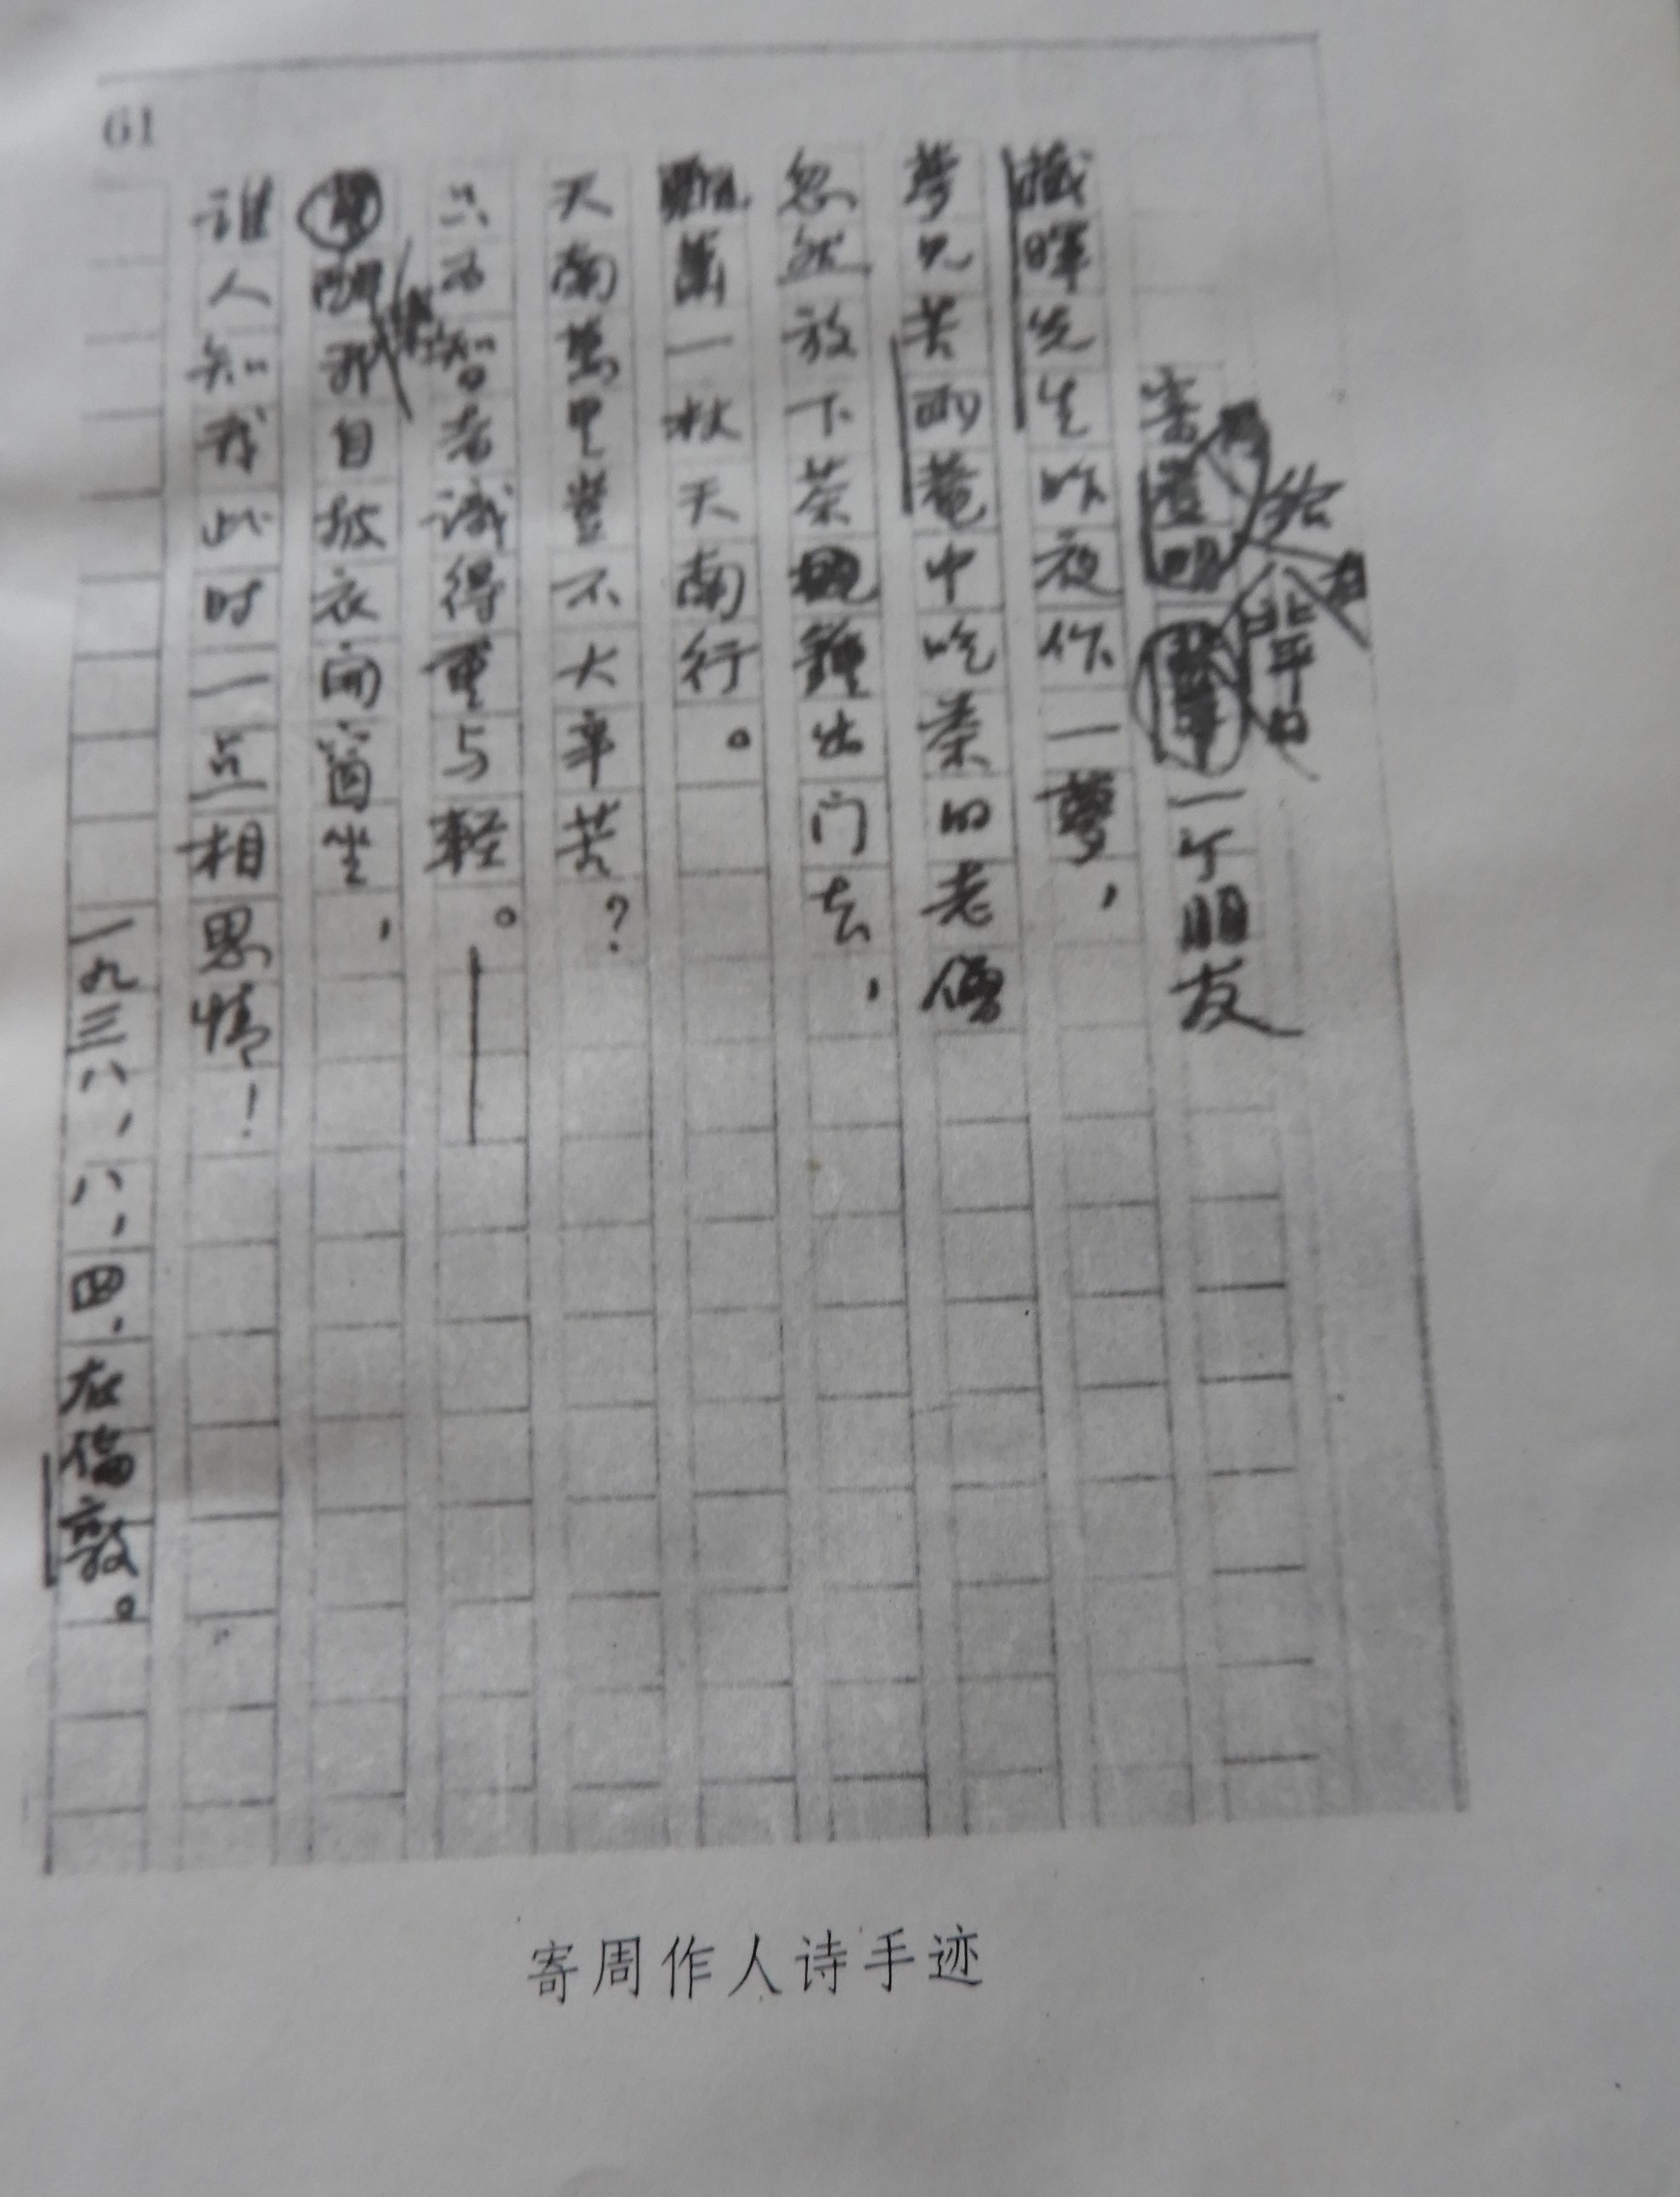 61
寄给北平的一个朋友
藏暉先生昨夜作一夢，
夢见苦雨菴中吃茶的老僧
忽然放下茶鍾出门去，
萧一杖天南行。
天南萬里豈不大辛苦？
只为智者識得重与輕。——
我自披衣開窗坐，
谁人知我此时一点相思情！
一九三八、八、四．在倫敦。
寄周作人诗手迹